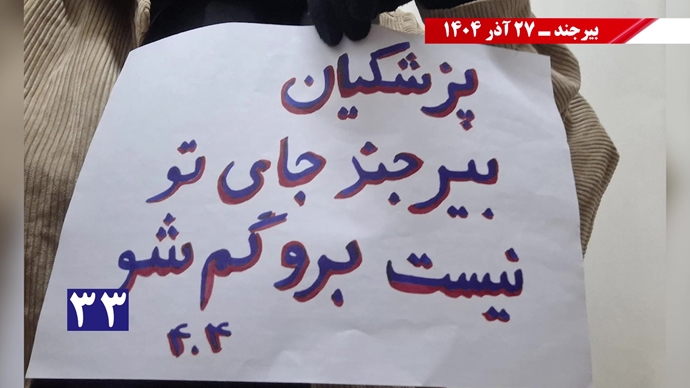 بیرجند ـ ۲۷ آذر ۱۴۰۴
پزشکیان
بیرجند جای تو
نیست برو گم شو
۴۰۴
۳۳